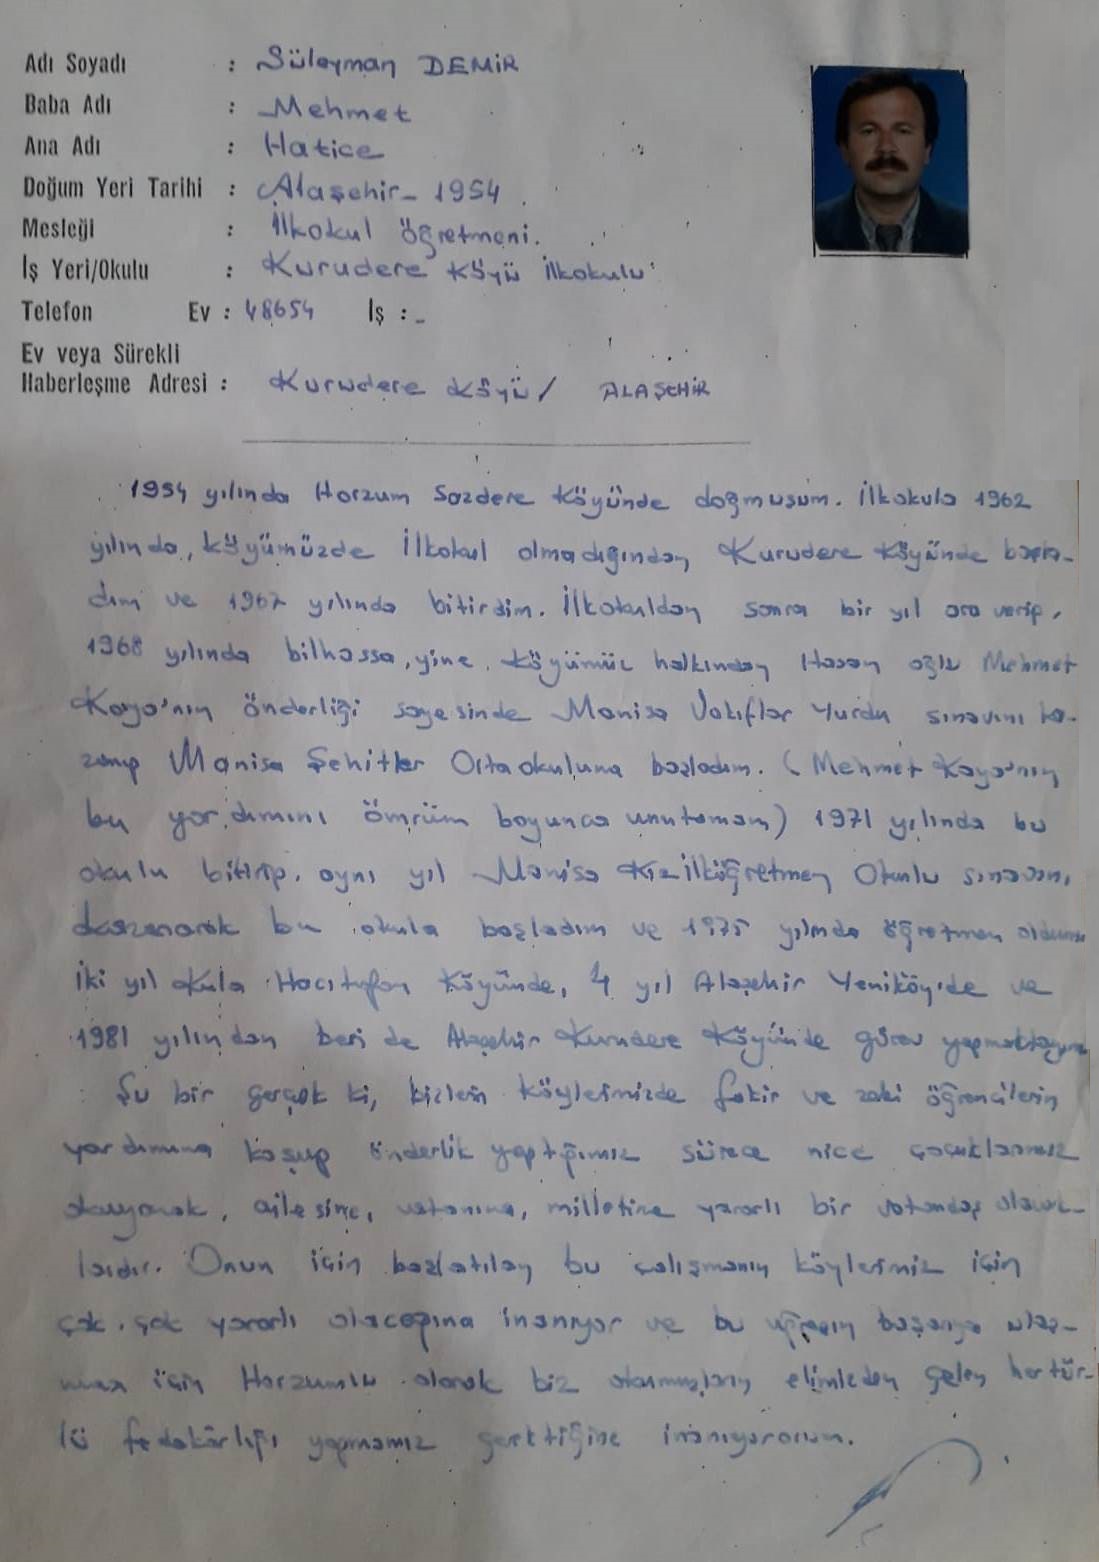 Adı Soyadı : Süleyman DEMİR
Baba Adı : Mehmet
Ana Adı : Hatice
Doğum Yeri Tarihi : Alaşehir - 1954
Mesleği : İlkokul öğretmeni.
İş Yeri/Okulu : Kurudere Köyü İlkokulu
Telefon Ev : 48654 İş : -
Ev veya Sürekli
Haberleşme Adresi : Kurudere Köyü / ALAŞEHİR
1954 yılında Horzum Sazdere Köyünde doğmuşum. İlkokula 1962
yılında, köyümüzde İlkokul olmadığından Kurudere Köyünde başla-
dım ve 1967 yılında bitirdim. İlkokuldan sonra bir yıl ara verip,
1968 yılında bilhassa, yine köyümüz halkından Hasan oğlu Mehmet
Kaya'nın önderliği sayesinde Manisa Vakıflar Yurdu sınavını ka-
zanıp Manisa Şehitler Ortaokuluna başladım. (Mehmet Kaya'nın
bu yardımını ömrüm boyunca unutamam) 1971 yılında bu
okulu bitirip, aynı yıl Manisa Kız ilköğretmen Okulu sınavını
kazanarak bu okula başladım ve 1975 yılında öğretmen oldum.
İki yıl Kula Hacıtufan Köyünde, 4 yıl Alaşehir Yeniköy'de ve
1981 yılından beri de Alaşehir Kurudere Köyünde görev yapmaktayım.
Şu bir gerçek ki, bizlerin köylerimizde fakir ve zeki öğrencilerin
yardımına koşup önderlik yaptığımız sürece nice çocuklarımız
okuyarak, ailesine, vatanına, milletine yararlı bir vatandaş olacak-
lardır. Onun için başlatılan bu çalışmanın köylerimiz için
çok, çok yararlı olacağına inanıyor ve bu uğraşın başarıya ulaş-
ması için Horzumlu olarak biz okumuşların elimizden gelen hertür-
lü fedakârlığı yapmamız gerektiğine inanıyorum.